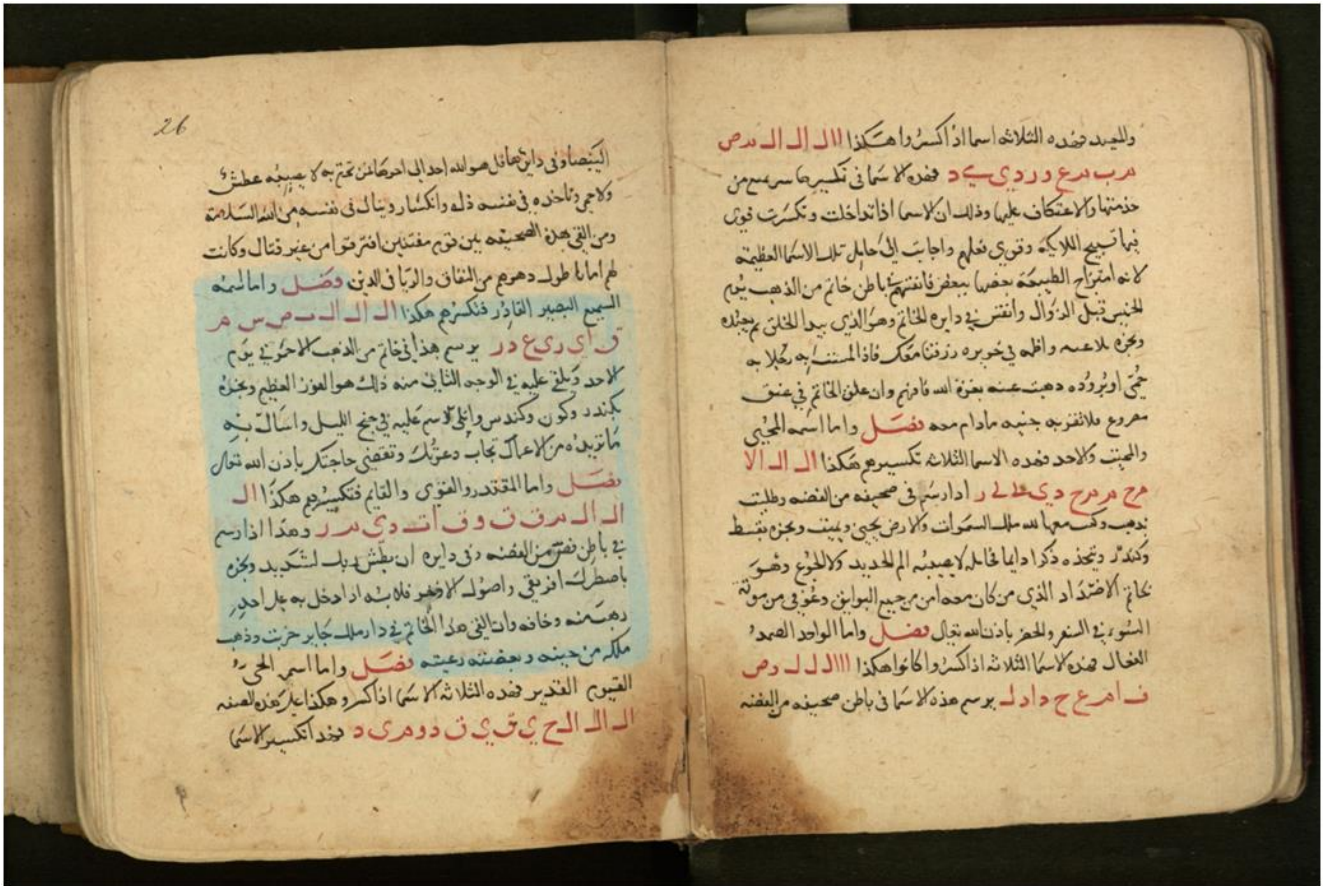 والمعيد فهذه الثلاثه اسما اذا كسروا هكذا اال ال ال م ص
م ب م ع د ر د ي ي د فهذه الاسما في تكسيرها سر عجيب من
خدمتها والاعتكاف عليها وذلك ان الاسما اذا تداخلت وتكسرت قوي
فيها تسبيح الملايكه وقوي فعلهم واجابت الي حامل تلك الاسما العظيمه
لانه امتزاج الطبيعه بعضها ببعض فانقشهم في باطن خاتم من الذهب يوم
الخميس قبل الزوال وانقش في دايره الخاتم وهو الذي يبدا الخلق ثم يعيده
وبخره في حريره زرقا معك فاذا به رجلا به
حمي او بروده دهبت عنه بعزة الله فافهم وان علق الخاتم في عنق
مصروع فلا تقربه جنيه مادام معه فصل واما اسمه المحيي
والمميت والاحد فهذه الاسما الثلاثه تكسيرهم هكذا ال ال الا
م ح م م ح د ي ادا رسم في صحيفه من الفضه وطليت
بدهب وكتب معها لله ملك السموات والارض يحيي ويميت وبخره بقسط
وكندر ويتخذه ذكرا دايما فحامله لا يصيبه الم الحديد ولا الجوع وهو
خاتم الذي من كان معه امن من جميع البوايق وعوفي من موتة
السوء في السفر والحضر باذن الله تعالي فصل واما الواحد الصمد
الفعال فهذه الاسما الثلاثه اذا كسروا كانوا هكذا اال ل ل و ص
ف ا م ع ح د ا د ل يرسم هذه الاسما في باطن صحيفه من الفضه
26
وفي دايرتها قل هو الله احد الي اخرها فمن تختم به لا يصيبه عطش
ولا حمي وتاخده في نفسه ذله وانكسار وينال في نفسه من الله السلامة
ومن القي هذه الصحيفه بين قوم مفتنين افترقوا من غير قتال وكانت
لهم امانا طول دهرهم من النفاق والريا في الدين فصل واما اسمه
السميع البصير القادر فتكسرهم هكذا ال ال ال ب ص س م
ق ا ي ر ي ع د ر يرسم هذا في خاتم من الذهب الاحمر في يوم
الاحد وتلقي عليه في الوجه الثاني منه ذلك هو الفوز العظيم وبخره
بكندر وكون وكندس واتلي الاسم عليه في جنح الليل واسال به
ما تريده من الاعمال تجاب دعوتك وتقضي حاجتك باذن الله تعالي
فصل واما المقتدر والقوي والقايم فتكسيرهم هكذا ال
ال ال م ق ق و ق ا ت د ي م ر وهذا اذا رسم
في باطن فص من الفضه وفي دايره ان بطش ربك لشديد وبخره
باصطرك افريقي واصول فلابسه اذا دخل به علي احد
رهب منه وخافه وان القي هذا الخاتم في دار ملك جابر خربت وذهب
ملكه من حينه وبغضته رعيته فصل واما اسم الحي
القيوم القدير فهذه الثلاثه الاسما اذا كسرو هكذا علي هذه الصفه
ال ال ال ح ي ق ي ق د و م ر ي د فهذا تكسير الاسما